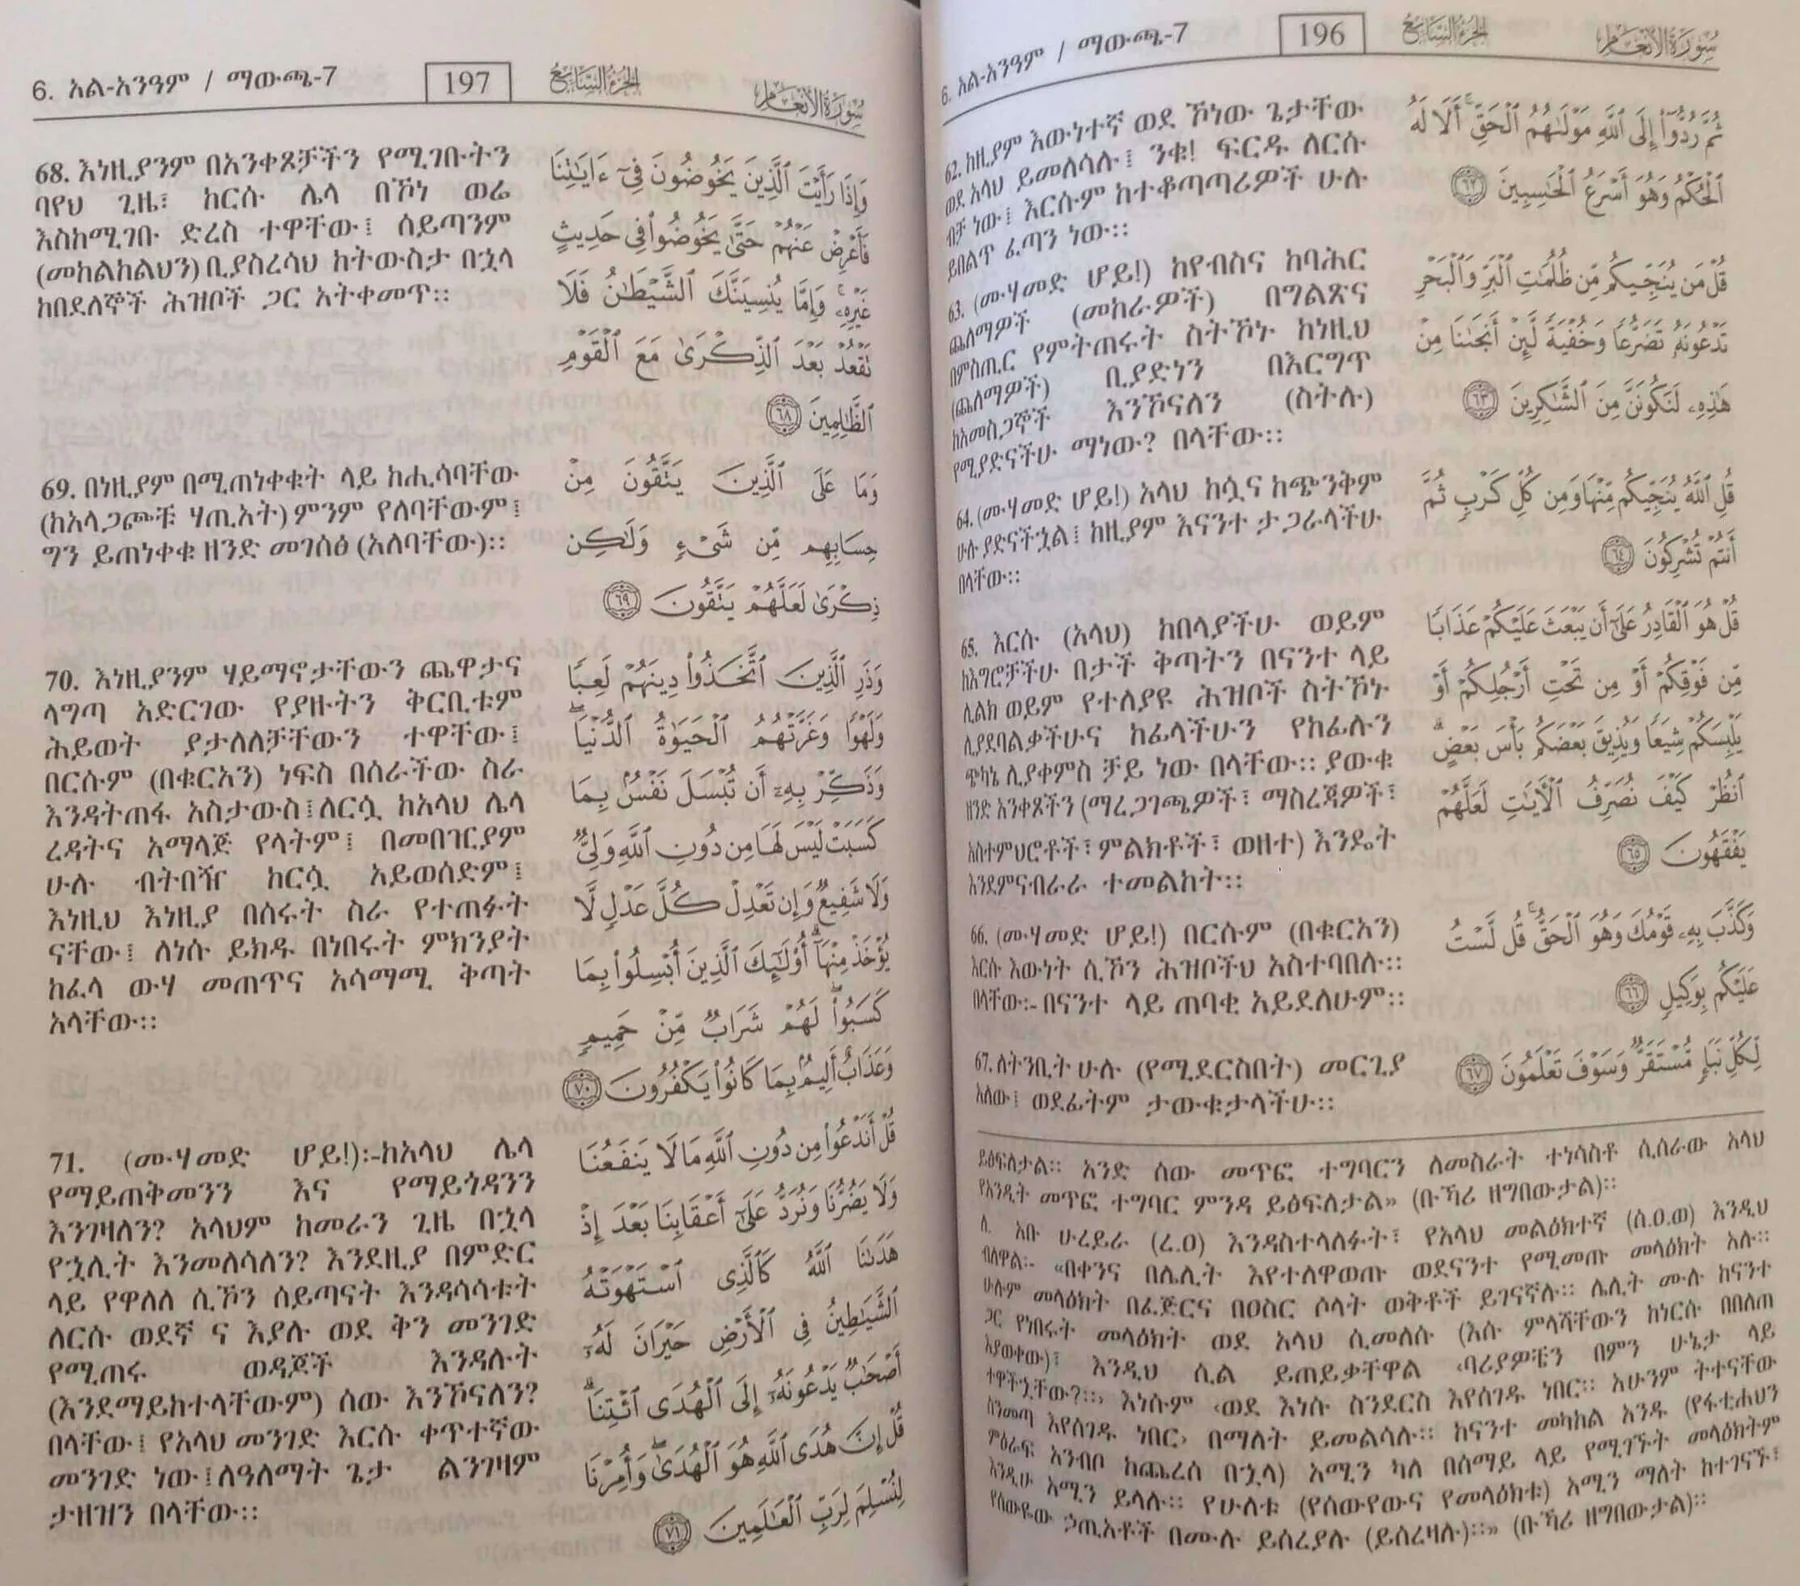 6. አል-አንዓም / ማውጫ-7 196 الجزء السابع سورة الأنعام
62. ከዚያም እውነተኛ ወደ ኾነው ጌታቸው
ወደ አላህ ይመለሳሉ፤ ንቁ! ፍርዱ ለርሱ
ብቻ ነው፤ እርሱም ከተቆጣጣሪዎች ሁሉ
ይበልጥ ፈጣን ነው።
63. (ሙሃመድ ሆይ!) ከየብስና ከባሕር
ጨለማዎች (መከራዎች) በግልጽና
በምስጢር የምትጠሩት ስትኾኑ ከነዚህ
(ጨለማዎች) ቢያድነን በእርግጥ
ከአመስጋኞች እንኾናለን (ስትሉ)
የሚያድናችሁ ማነው? በላቸው።
64. (ሙሃመድ ሆይ!) አላህ ከሷና ከጭንቅም
ሁሉ ያድናችኋል፤ ከዚያም እናንተ ታጋራላችሁ
በላቸው።
65. እርሱ (አላህ) ከበላያችሁ ወይም
ከእግሮቻችሁ በታች ቅጣትን በናንተ ላይ
ሊልክ ወይም የተለያዩ ሕዝቦች ስትኾኑ
ሊያደባልቃችሁና ከፊላችሁን የከፊሉን
ጭካኔ ሊያቀምስ ቻይ ነው በላቸው። ያውቁ
ዘንድ አንቀጾችን (ማረጋገጫዎች፣ ማስረጃዎች፣
አስተምህሮቶች፣ ምልክቶች፣ ወዘተ) እንዴት
እንደምናብራራ ተመልከት።
66. (ሙሃመድ ሆይ!) በርሱም (በቁርአን)
እርሱ እውነት ሲኾን ሕዝቦችህ አስተባበሉ።
በላቸው፡- በናንተ ላይ ጠባቂ አይደለሁም።
67. ለትንቢት ሁሉ (የሚደርስበት) መርጊያ
አለው፤ ወደፊትም ታውቁታላችሁ።
ثُمَّ رُدُّوٓا۟ إِلَى ٱللَّهِ مَوْلَىٰهُمُ ٱلْحَقِّ ۚ أَلَا لَهُ
ٱلْحُكْمُ وَهُوَ أَسْرَعُ ٱلْحَـٰسِبِينَ ٦٢
قُلْ مَن يُنَجِّيكُم مِّن ظُلُمَـٰتِ ٱلْبَرِّ وَٱلْبَحْرِ
تَدْعُونَهُۥ تَضَرُّعًا وَخُفْيَةً لَّئِنْ أَنجَىٰنَا مِنْ
هَـٰذِهِۦ لَنَكُونَنَّ مِنَ ٱلشَّـٰكِرِينَ ٦٣
قُلِ ٱللَّهُ يُنَجِّيكُم مِّنْهَا وَمِن كُلِّ كَرْبٍ ثُمَّ
أَنتُمْ تُشْرِكُونَ ٦٤
قُلْ هُوَ ٱلْقَادِرُ عَلَىٰٓ أَن يَبْعَثَ عَلَيْكُمْ عَذَابًا
مِّن فَوْقِكُمْ أَوْ مِن تَحْتِ أَرْجُلِكُمْ أَوْ
يَلْبِسَكُمْ شِيَعًا وَيُذِيقَ بَعْضَكُم بَأْسَ بَعْضٍ ۗ
ٱنظُرْ كَيْفَ نُصَرِّفُ ٱلْـَٔايَـٰتِ لَعَلَّهُمْ
يَفْقَهُونَ ٦٥
وَكَذَّبَ بِهِۦ قَوْمُكَ وَهُوَ ٱلْحَقُّ ۚ قُل لَّسْتُ
عَلَيْكُم بِوَكِيلٍ ٦٦
لِّكُلِّ نَبَإٍ مُّسْتَقَرٌّ ۚ وَسَوْفَ تَعْلَمُونَ ٦٧
ይፅፍለታል። አንድ ሰው መጥፎ ተግባርን ለመስራት ተነሳስቶ ሲሰራው አላህ
የአንዲት መጥፎ ተግባር ምንዳ ይፅፍለታል» (ቡኻሪ ዘግበውታል)።
ለ. አቡ ሁረይራ (ረ.ዐ) እንዳስተላለፉት፣ የአላህ መልዕክተኛ (ሰ.ዐ.ወ) እንዲህ
ብለዋል፡- «በቀንና በሌሊት እየተለዋወጡ ወደናንተ የሚመጡ መላዕክት አሉ።
ሁሉም መላዕክት በፈጅርና በዐስር ሶላት ወቅቶች ይገናኛሉ። ሌሊት ሙሉ ከናንተ
ጋር የነበሩት መላዕክት ወደ አላህ ሲመለሱ (እሱ ምላሻቸውን ከነርሱ በበለጠ
እያወቀው)፣ እንዲህ ሲል ይጠይቃቸዋል ‹ባሪያዎቼን በምን ሁኔታ ላይ
ተዋችኋቸው?።› እነሱም ‹ወደ እነሱ ስንደርስ እየሰገዱ ነበር። አሁንም ትተናቸው
ስንመጣ እየሰገዱ ነበር› በማለት ይመልሳሉ። ከናንተ መካከል አንዱ (የፋቲሐህን
ምዕራፍ አንብቦ ከጨረሰ በኋላ) አሚን ካለ በሰማይ ላይ የሚገኙት መላዕክትም
እንዲሁ አሚን ይላሉ። የሁለቱ (የሰውየውና የመላዕክቱ) አሚን ማለት ከተገናኙ፣
የሰውዬው ኃጢአቶች በሙሉ ይሰረያሉ (ይሰረዛሉ)።» (ቡኻሪ ዘግበውታል)።
6. አል-አንዓም / ማውጫ-7 197 الجزء السابع سورة الأنعام
68. እነዚያንም በአንቀጾቻችን የሚገቡትን
ባየህ ጊዜ፣ ከርሱ ሌላ በኾነ ወሬ
እስከሚገቡ ድረስ ተዋቸው፤ ሰይጣንም
(መከልከልህን) ቢያስረሳህ ከትውስታ በኋላ
ከበደለኞች ሕዝቦች ጋር አትቀመጥ።
69. በነዚያም በሚጠነቀቁት ላይ ከሒሳባቸው
(ከአላጋጮቹ ሃጢአት) ምንም የለባቸውም፤
ግን ይጠነቀቁ ዘንድ መገሰፅ (አለባቸው)።
70. እነዚያንም ሃይማኖታቸውን ጨዋታና
ላግጣ አድርገው የያዙትን ቅርቢቱም
ሕይወት ያታለለቻቸውን ተዋቸው፤
በርሱም (በቁርአን) ነፍስ በሰራችው ስራ
እንዳትጠፋ አስታውስ፤ ለርሷ ከአላህ ሌላ
ረዳትና አማላጅ የላትም፤ በመበዢያም
ሁሉ ብትበዥ ከርሷ አይወሰድም፤
እነዚህ እነዚያ በሰሩት ስራ የተጠፉት
ናቸው፤ ለነሱ ይክዱ በነበሩት ምክንያት
ከፈላ ውሃ መጠጥና አሳማሚ ቅጣት
አላቸው።
71. (ሙሃመድ ሆይ!)፡-ከአላህ ሌላ
የማይጠቅመንን እና የማይጎዳንን
እንገዛለን? አላህም ከመራን ጊዜ በኋላ
የኋሊት እንመለሳለን? እንደዚያ በምድር
ላይ የዋለለ ሲኾን ሰይጣናት እንዳሳሳቱት
ለርሱ ወደኛ ና እያሉ ወደ ቅን መንገድ
የሚጠሩ ወዳጆች እንዳሉት
(እንደማይከተላቸውም) ሰው እንኾናለን?
በላቸው፤ የአላህ መንገድ እርሱ ቀጥተኛው
መንገድ ነው፤ ለዓለማት ጌታ ልንገዛም
ታዘዝን በላቸው።
وَإِذَا رَأَيْتَ ٱلَّذِينَ يَخُوضُونَ فِىٓ ءَايَـٰتِنَا
فَأَعْرِضْ عَنْهُمْ حَتَّىٰ يَخُوضُوا۟ فِى حَدِيثٍ
غَيْرِهِۦ ۚ وَإِمَّا يُنسِيَنَّكَ ٱلشَّيْطَـٰنُ فَلَا
تَقْعُدْ بَعْدَ ٱلذِّكْرَىٰ مَعَ ٱلْقَوْمِ
ٱلظَّـٰلِمِينَ ٦٨
وَمَا عَلَى ٱلَّذِينَ يَتَّقُونَ مِنْ
حِسَابِهِم مِّن شَىْءٍ وَلَـٰكِن
ذِكْرَىٰ لَعَلَّهُمْ يَتَّقُونَ ٦٩
وَذَرِ ٱلَّذِينَ ٱتَّخَذُوا۟ دِينَهُمْ لَعِبًا
وَلَهْوًا وَغَرَّتْهُمُ ٱلْحَيَوٰةُ ٱلدُّنْيَا ۚ
وَذَكِّرْ بِهِۦٓ أَن تُبْسَلَ نَفْسٌۢ بِمَا
كَسَبَتْ لَيْسَ لَهَا مِن دُونِ ٱللَّهِ وَلِىٌّ
وَلَا شَفِيعٌ وَإِن تَعْدِلْ كُلَّ عَدْلٍ لَّا
يُؤْخَذْ مِنْهَآ ۗ أُو۟لَـٰٓئِكَ ٱلَّذِينَ أُبْسِلُوا۟ بِمَا
كَسَبُوا۟ ۖ لَهُمْ شَرَابٌ مِّنْ حَمِيمٍ
وَعَذَابٌ أَلِيمٌۢ بِمَا كَانُوا۟ يَكْفُرُونَ ٧٠
قُلْ أَنَدْعُوا۟ مِن دُونِ ٱللَّهِ مَا لَا يَنفَعُنَا
وَلَا يَضُرُّنَا وَنُرَدُّ عَلَىٰٓ أَعْقَابِنَا بَعْدَ إِذْ
هَدَىٰنَا ٱللَّهُ كَٱلَّذِى ٱسْتَهْوَتْهُ
ٱلشَّيَـٰطِينُ فِى ٱلْأَرْضِ حَيْرَانَ لَهُۥٓ
أَصْحَـٰبٌ يَدْعُونَهُۥٓ إِلَى ٱلْهُدَى ٱئْتِنَا ۗ
قُلْ إِنَّ هُدَى ٱللَّهِ هُوَ ٱلْهُدَىٰ ۖ وَأُمِرْنَا
لِنُسْلِمَ لِرَبِّ ٱلْعَـٰلَمِينَ ٧١